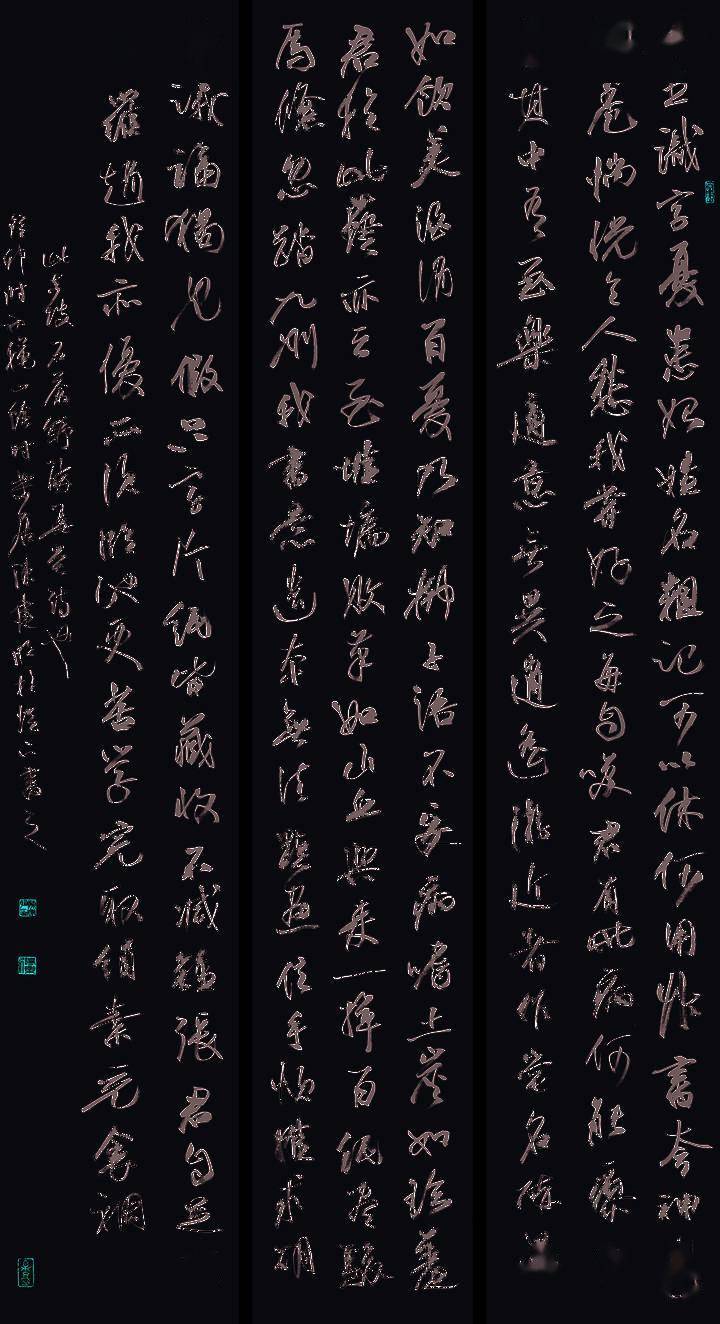 識字憂患始姓名粗記可以休何用草書夸神
卷惝怳令人愁我嘗好之每自笑君有此病何能瘳
其中有至樂適意無異逍遙游近者作堂名醉
如飲美酒消百憂乃知柳子語不妄病嗜土炭如珍羞
君於此藝亦云至堆墻敗筆如山丘興來一揮百紙盡駿
馬倏忽踏九州我書意造本無法點畫信手煩推求胡
議論獨見假只字片紙皆藏收不減鍾張君自足
羅趙我亦優不須臨池更苦學完取絹素充衾裯
此東坡石蒼舒醉墨堂詩也